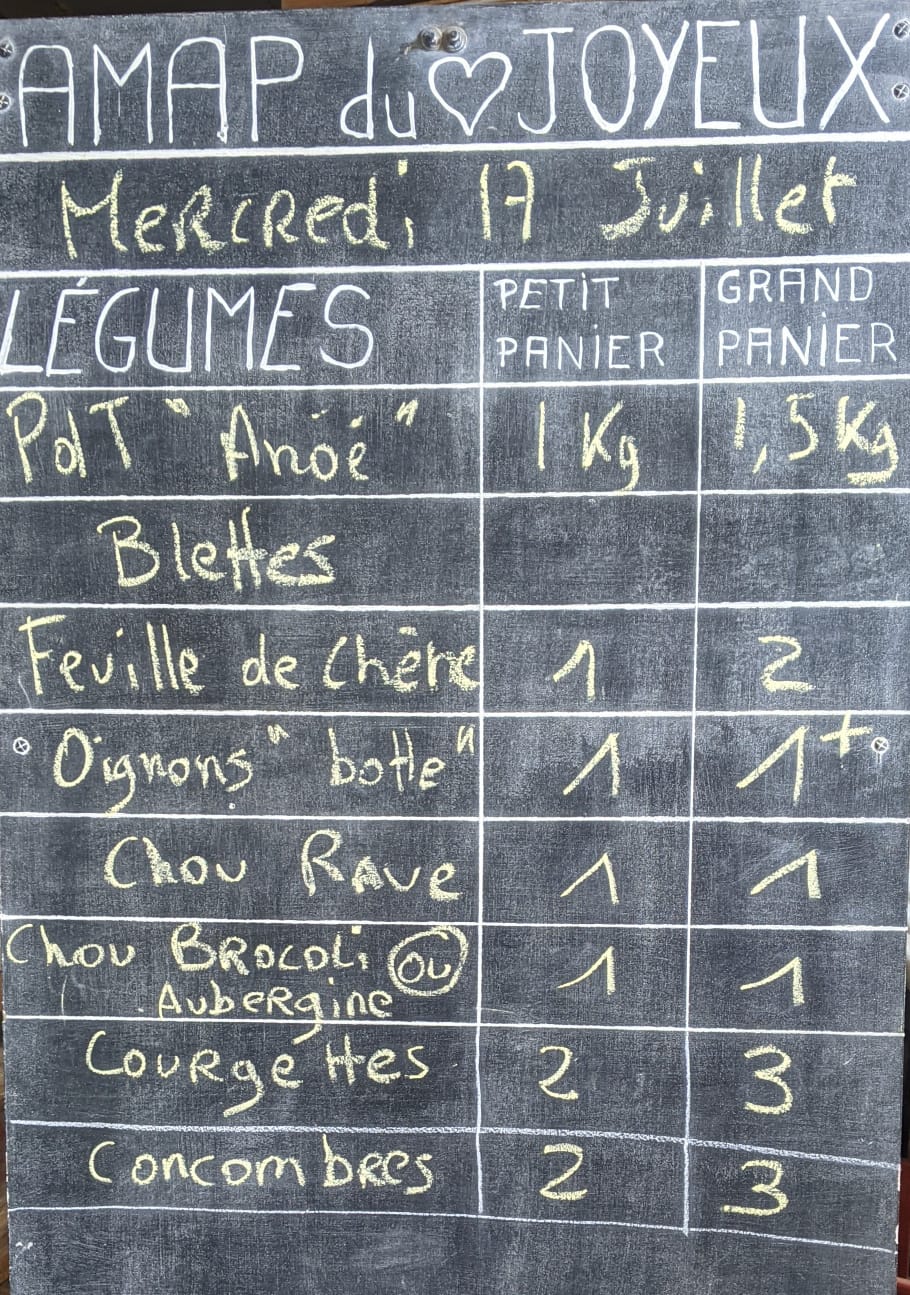 AMAP du ♡ JOYEUX
Mercredi 17 Juillet
LÉGUMES PETIT PANIER GRAND PANIER
PdT "Anöé" 1 Kg 1,5 Kg
Blettes
Feuille de chêne 1 2
Oignons "botte" 1 1+
Chou Rave 1 1
Chou Brocoli ou 1 1
Aubergine
Courgettes 2 3
Concombres 2 3